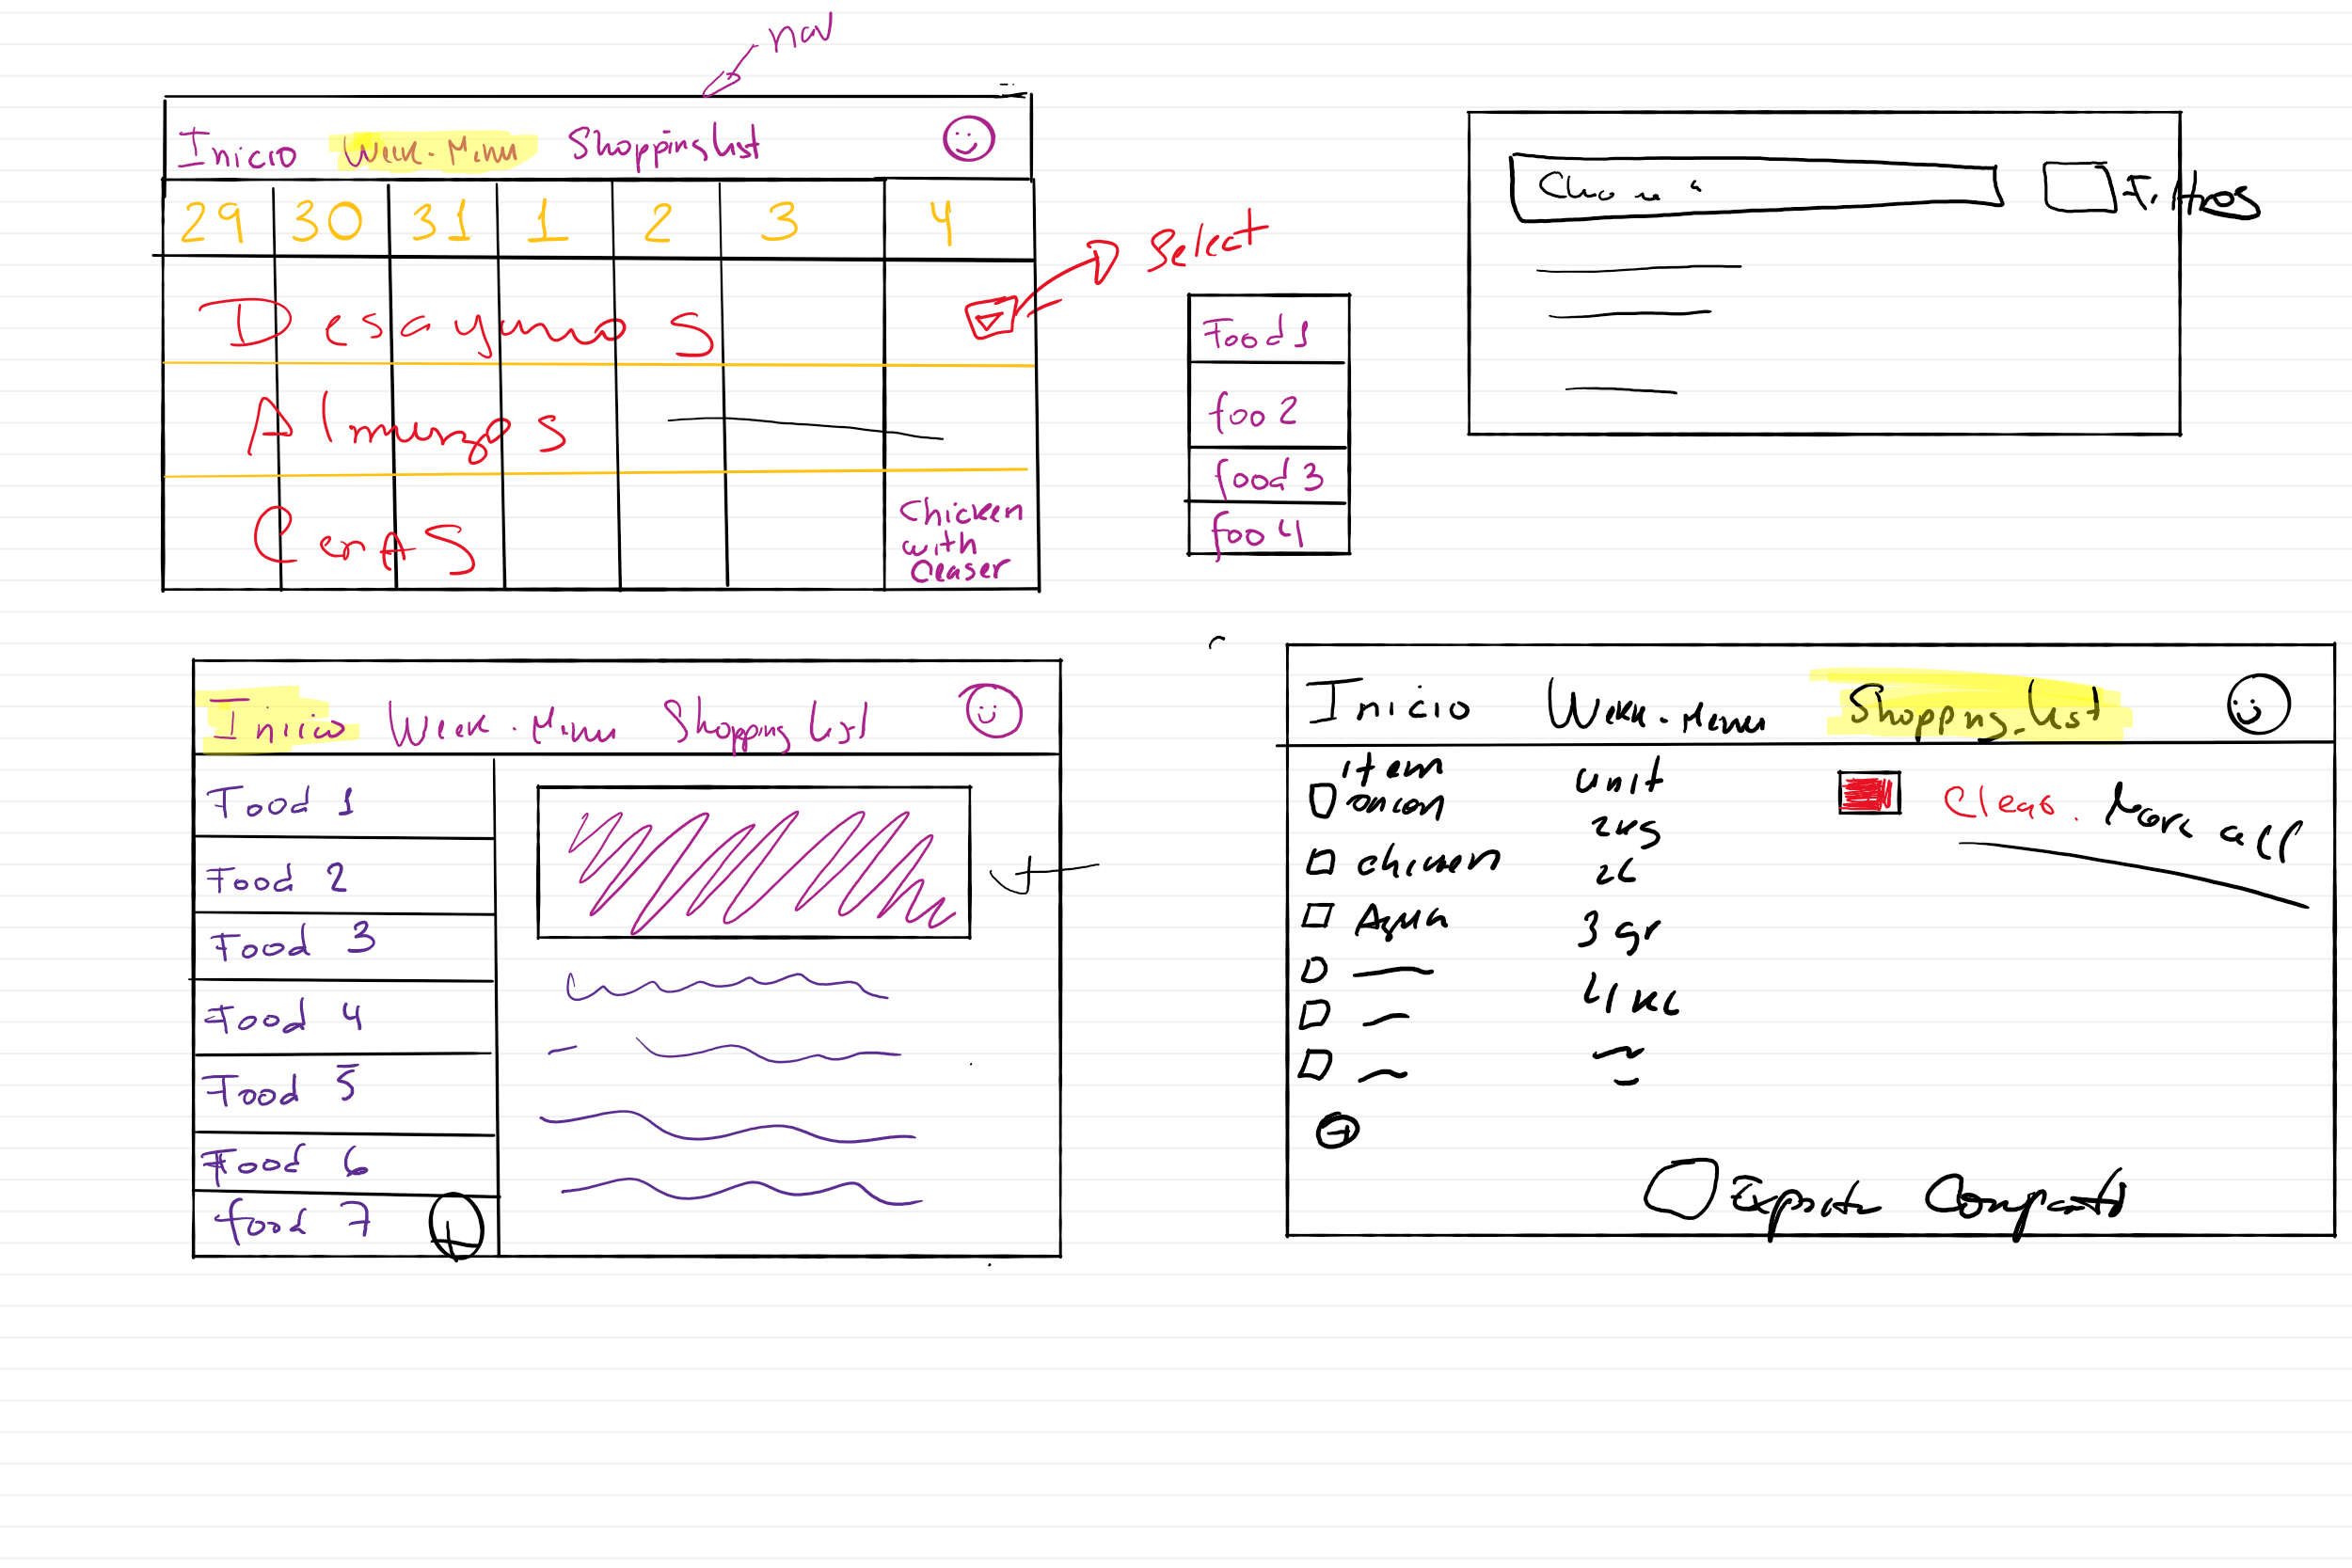 nav
Inicio Week-Menu Shopping list
29 30 31 1 2 3 4
Desayunos
Select
Almuerzos
Cenas
Chicken
with
Ceaser
Food 1
foo 2
food 3
foo 4
Filtros
Inicio Week-Menu Shopping list
Food 1
Food 2
Food 3
Food 4
Food 5
Food 6
food 7
Inicio Week-Menu Shopping_list
item unit
onion 2kg
chicken
Agua 3 gr
Clear. Mark all